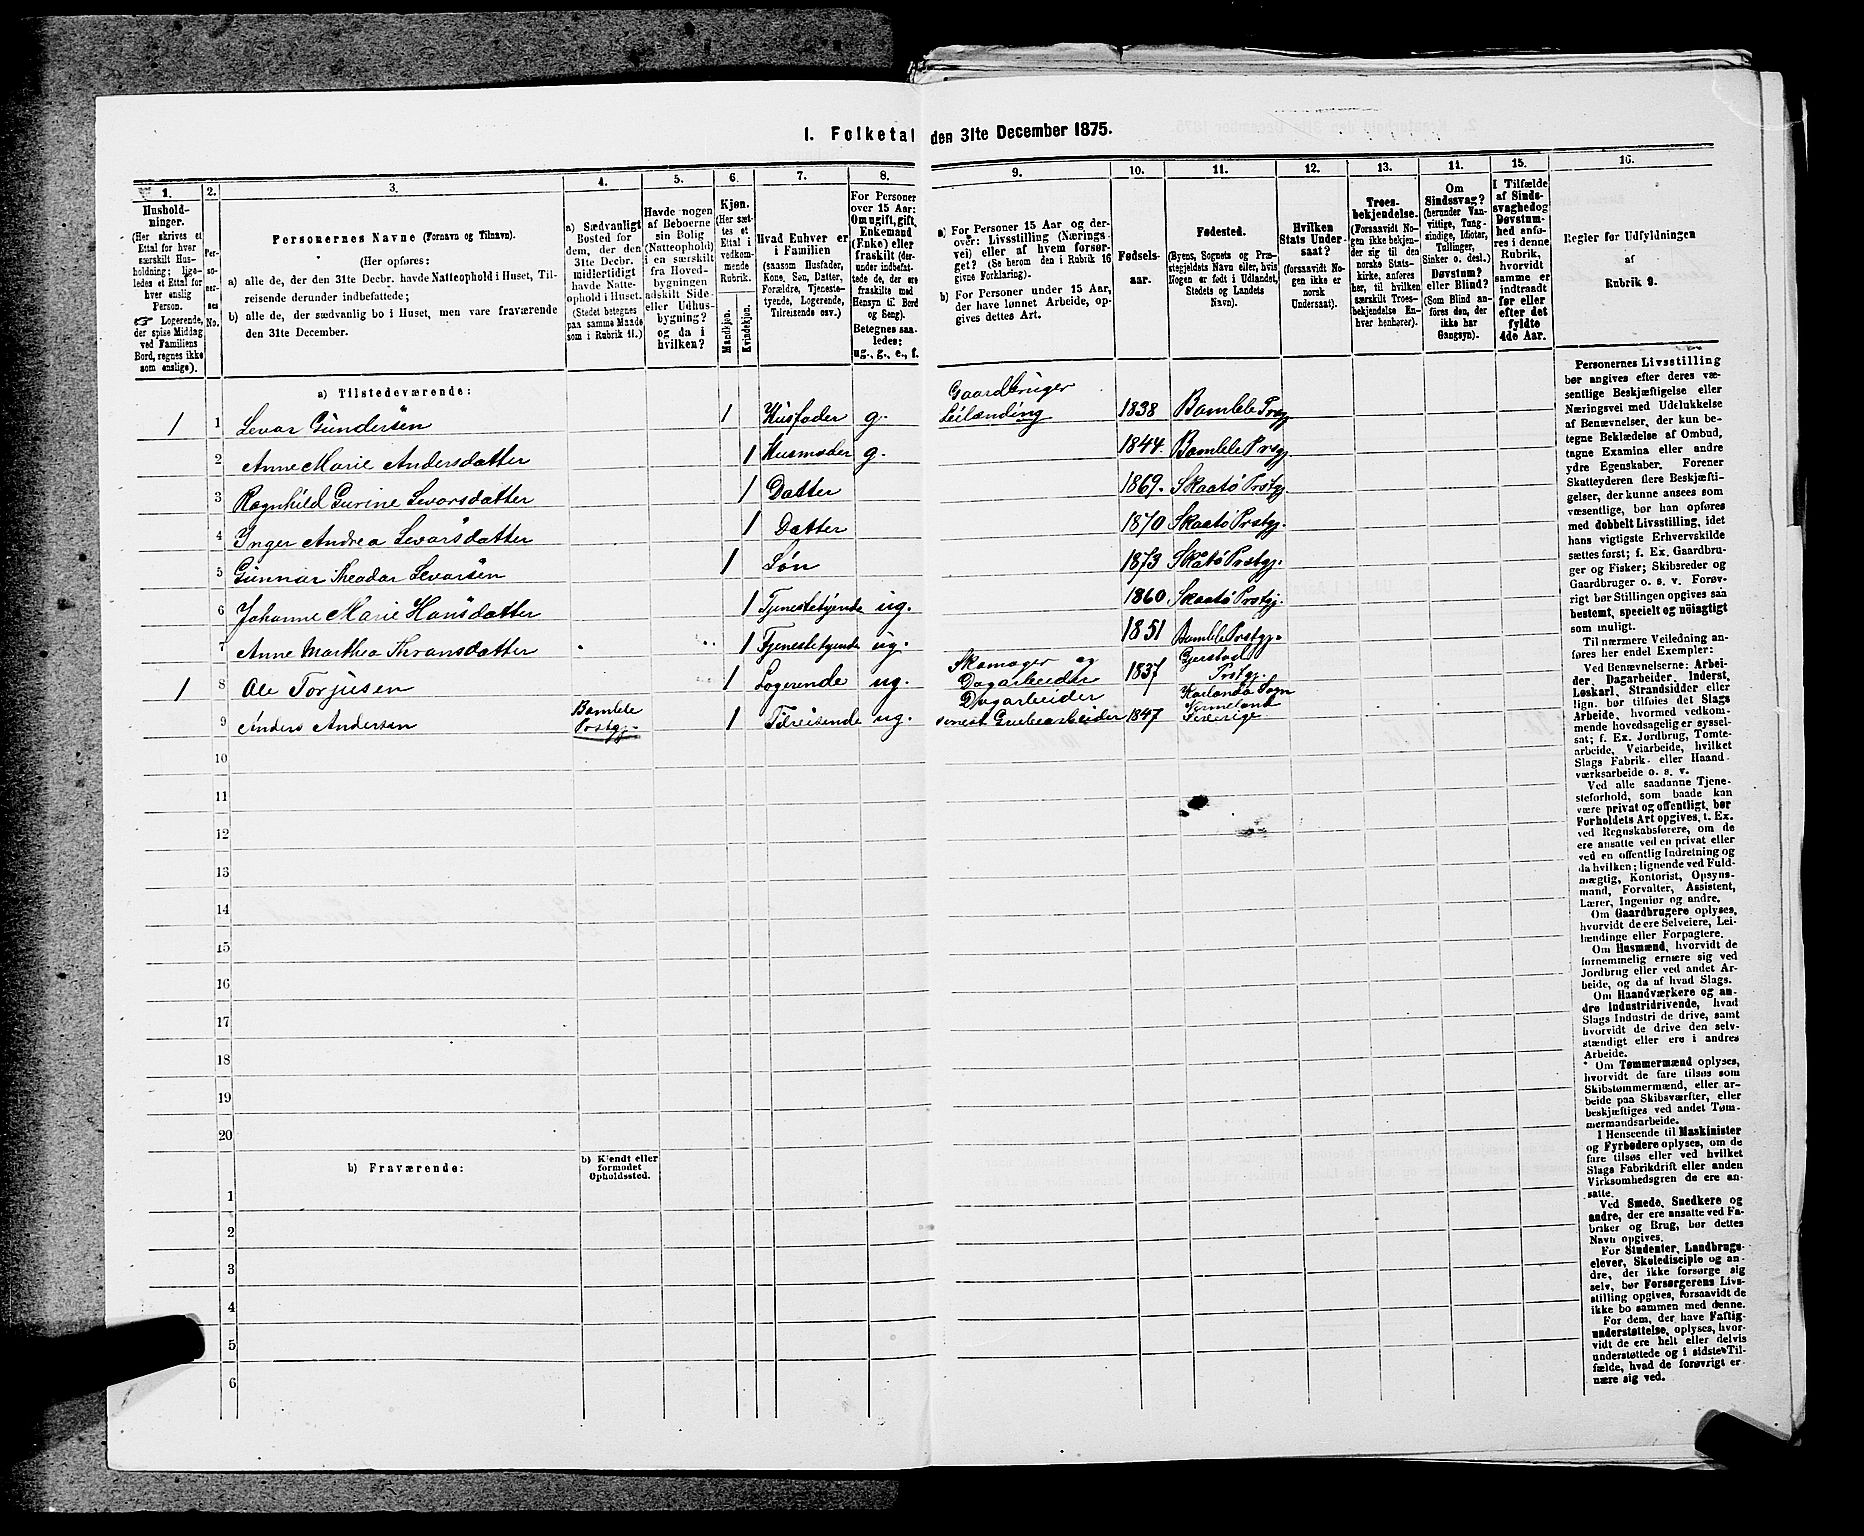 I. Folketal den 31te December 1875.
1.
Hushold-
ninger.
(Her skrives et
Ettal for hver
særskilt Hus-
holdning; lige-
ledes et Ettal for
hver enslig
Person.
☞ Logerende,
der spise Middag
ved Familiens
Bord, regnes ikke
som enslige).
2.
Per-
so-
ner-
nes
No.
3.
Personernes Navne (Fornavn og Tilnavn).
(Her opføres:
a) alle de, der den 31te Decbr. havde Natteophold i Huset, Til-
reisende derunder indbefattede;
b) alle de, der sædvanlig bo i Huset, men vare fraværende
den 31te December.
4.
a) Sædvanligt
Bosted for
dem, der den
31te Decbr.
midlertidigt
havde Natte-
ophold i Huset.
(Stedet betegnes
paa samme Maade
som i Rubrik 11.)
5.
Havde nogen
af Beboerne
sin Bolig
(Natteophold)
i en særskilt
fra Hoved-
bygningen
adskilt Side-
eller Udhus-
bygning?
og da i
hvilken?
6.
Kjøn.
(Her sæt-
tes et
Ettal i
vedkom-
mende
Rubrik.
Mandkjøn.
Kvindekjøn.
7.
Hvad Enhver er
i Familien
(saasom Husfader,
Kone, Søn, Datter,
Forældre, Tjeneste-
tyende, Logerende,
Tilreisende osv.)
8.
For Personer
over 15 Aar:
Om ugift, gift,
Enkemand
(Enke) eller
fraskilt (der-
under indbefat-
tede de, der ere
fraskilte med
Hensyn til Bord
og Seng).
Betegnes saa-
ledes:
ug., g., e., f.
9.
a) For Personer 15 Aar og der-
over: Livsstilling (Nærings-
vei) eller af hvem forsør-
get? (Se herom den i Rubrik 16
givne Forklaring).
b) For Personer under 15 Aar,
der have lønnet Arbeide, op-
gives dettes Art.
10.
Fødsels-
aar.
11.
Fødested.
(Byens, Sognets og Præ-
stegjeldets Navn eller, hvis
Nogen er født i Udlandet,
Stedets og Landets
Navn).
12.
Hvilken
Stats Under-
saat?
(forsaavidt No-
gen ikke er
norsk
Undersaat).
13.
Troes-
bekjendelse.
(Forsaavidt No-
gen ikke bekjen-
der sig til den
norske Stats-
kirke, anføres
her, til hvilken
særskilt Troes-
bekjendelse En-
hver henhører).
14.
Om
Sindssvag?
(herunder Van-
vittige, Tung-
sindige, Idioter,
Tullinger,
Sinker o. desl.)
Døvstum?
eller Blind?
(Som Blind an-
føres den, der
ikke har
Gangsyn).
15.
I Tilfælde
af Sinds-
svaghed og
Døvstum-
hed anfø-
res i denne
Rubrik,
hvorvidt
samme er
indtraadt
før eller
efter det
fyldte
4de Aar.
16.
Regler for Udfyldningen
af
Rubrik 9.
a) Tilstedeværende:
1 1 Levor Gundersen 1 Husfader g. Gaardbruger Leilænding 1838 Bamble Prstgj.
2 Anne Marie Andersdatter 1 Husmoder g. 1844. Bamble Prstgj.
3 Ragnhild Gurine Levorsdatter 1 Datter 1869. Skaatø Prstgj.
4 Inger Andrea Levorsdatter 1 Datter 1870 Skaatø Prstgj.
5 Gunnar Theodor Levorsen 1 Søn 1873 Skaatø Prstgj.
6 Johanne Marie Hansdatter 1 Tjenestetyende ug. 1860. Skaatø Prstgj.
7 Anne Marthea 1 Tjenestetyende ug. 1851 Bamble Prstgj.
1 8 Ole Torjusen 1 Logerende ug. Skomager og Dagarbeider 1837 Gjerstad Prstgj.
9 Anders Andersen Bamble Prstgj. 1 Tilreisende ug. Dagarbeider senest Grubearbeider 1847 Sogn Vermeland Sverige
10
11
12
13
14
15
16
17
18
19
20
b) Fraværende:
b) Kjendt eller
formodet
Opholdssted.
1
2
3
4
5
6
Personernes Livsstilling
bør angives efter deres væ-
sentlige Beskjæftigelse eller
Næringsvei med Udelukkelse
af Benævnelser, der kun be-
tegne Beklædelse af Ombud,
tagne Examina eller andre
ydre Egenskaber. Forener
Skatteyderen flere Beskjæfti-
gelser, der kunne ansees som
væsentlige, bør han opføres
med dobbelt Livsstilling, idet
hans vigtigste Erhvervskilde
sættes først; f. Ex. Gaardbru-
ger og Fisker; Skibsreder og
Gaardbruger o. s. v. Forøv-
rigt bør Stillingen opgives saa
bestemt, specielt og nöiagtigt
som muligt.
Til nærmere Veiledning an-
føres her endel Exempler:
Ved Benævnelserne: Arbei-
der, Dagarbeider, Inderst,
Løskarl, Strandsidder eller
lign. bør tilføies det Slags
Arbeide, hvormed vedkom-
mende hovedsagelig er syssel-
sat; f. Ex. Jordbrug, Tomte-
arbeide, Veiarbeide, hvilket
Slags Fabrik- eller Haand-
værksarbeide o. s. v.
Ved alle saadanne Tjene-
steforhold, som baade kan
være privat og offentligt, bør
Forholdets Art opgives, f. Ex.
ved Regnskabsførere, om de
ere ansatte ved en privat eller
ved en offentlig Indretning og
da hvilken; lignende ved Fuld-
mægtig, Kontorist, Opsyns-
mand, Forvalter, Assistent,
Lærer, Ingeniør og andre.
Om Gaardbrugere oplyses,
hvorvidt de ere Selveiere, Lei-
lændinge eller Forpagtere.
Om Husmænd, hvorvidt de
fornemmelig ernære sig ved
Jordbrug eller ved andet Ar-
beide, og da af hvad Slags.
Om Haandværkere og an-
dre Industridrivende, hvad
Slags Industri de drive, samt
hvorvidt de drive den selv-
stændigt eller ere i andres
Arbeide.
Om Tømmermænd oplyses,
hvorvidt de fare tilsøs som
Skibstømmermænd, eller ar-
beide paa Skibsværfter, eller
beskjæftiges ved andet Tøm-
mermandsarbeide.
I Henseende til Maskinister
og Fyrbødere oplyses, om de
fare tilsøs eller ved hvilket
Slags Fabrikdrift eller anden
Virksomhedsgren de ere an-
satte.
Ved Smede, Snedkere og
andre, der ere ansatte ved Fa-
briker og Brug, bør dettes
Navn opgives.
For Studenter, Landbrugs-
elever, Skoledisciple og an-
dre, der ikke forsørge sig
selv, bør Forsørgerens Livs-
stilling opgives, forsaavidt de
ikke bo sammen med denne.
For dem, der have Fattig-
understøttelse, oplyses, hvor-
vidt de ere helt eller delvis
understøttede og i sidste Til-
fælde, hvad de forøvrigt er-
nære sig ved.